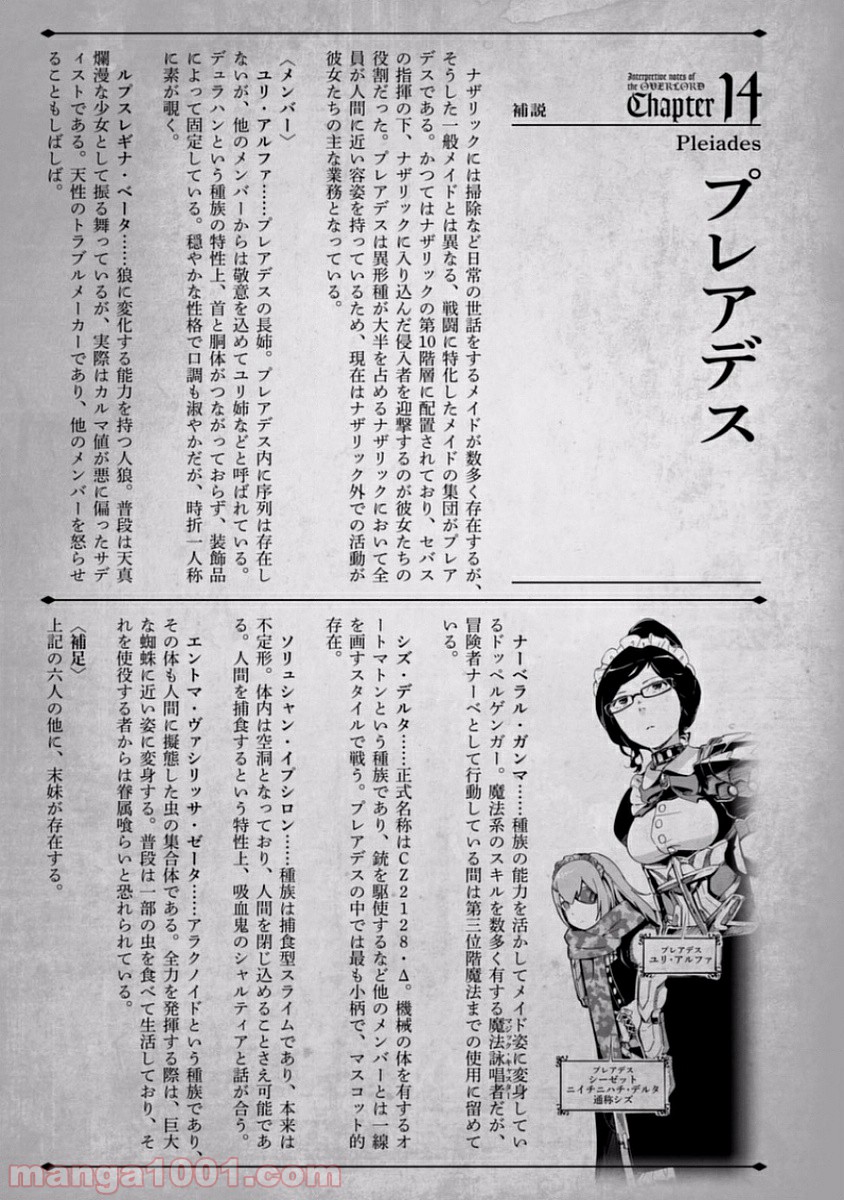 Interpretive notes of
the OVERLORD
Chapter 14
補説
Pleiades
プレアデス
ナザリックには掃除など日常の世話をするメイドが数多く存在するが、
そうした一般メイドとは異なる、戦闘に特化したメイドの集団がプレア
デスである。かつてはナザリックの第10階層に配置されており、セバス
の指揮の下、ナザリックに入り込んだ侵入者を迎撃するのが彼女たちの
役割だった。プレアデスは異形種が大半を占めるナザリックにおいて全
員が人間に近い容姿を持っているため、現在はナザリック外での活動が
彼女たちの主な業務となっている。
〈メンバー〉
ユリ・アルファ……プレアデスの長姉。プレアデス内に序列は存在し
ないが、他のメンバーからは敬意を込めてユリ姉などと呼ばれている。
デュラハンという種族の特性上、首と胴体がつながっておらず、装飾品
によって固定している。穏やかな性格で口調も淑やかだが、時折一人称
に素が覗く。
ルプスレギナ・ベータ……狼に変化する能力を持つ人狼。普段は天真
爛漫な少女として振る舞っているが、実際はカルマ値が悪に偏ったサデ
ィストである。天性のトラブルメーカーであり、他のメンバーを怒らせ
ることもしばしば。
ナーベラル・ガンマ……種族の能力を活かしてメイド姿に変身してい
るドッペルゲンガー。魔法系のスキルを数多く有する魔法詠唱者だが、
マジック・キャスター
冒険者ナーベとして行動している間は第三位階魔法までの使用に留めて
いる。
シズ・デルタ……正式名称はCZ2128・Δ。機械の体を有するオ
ートマトンという種族であり、銃を駆使するなど他のメンバーとは一線
を画すスタイルで戦う。プレアデスの中では最も小柄で、マスコット的
存在。
ソリュシャン・イプシロン……種族は捕食型スライムであり、本来は
不定形。体内は空洞となっており、人間を閉じ込めることさえ可能であ
る。人間を捕食するという特性上、吸血鬼のシャルティアと話が合う。
エントマ・ヴァシリッサ・ゼータ……アラクノイドという種族であり、
その体も人間に擬態した虫の集合体である。全力を発揮する際は、巨大
な蜘蛛に近い姿に変身する。普段は一部の虫を食べて生活しており、そ
れを使役する者からは眷属喰らいと恐れられている。
〈補足〉
上記の六人の他に、末妹が存在する。
プレアデス
ユリ・アルファ
プレアデス
シーゼット
ニイチニハチ・デルタ
通称シズ
manga1001.com